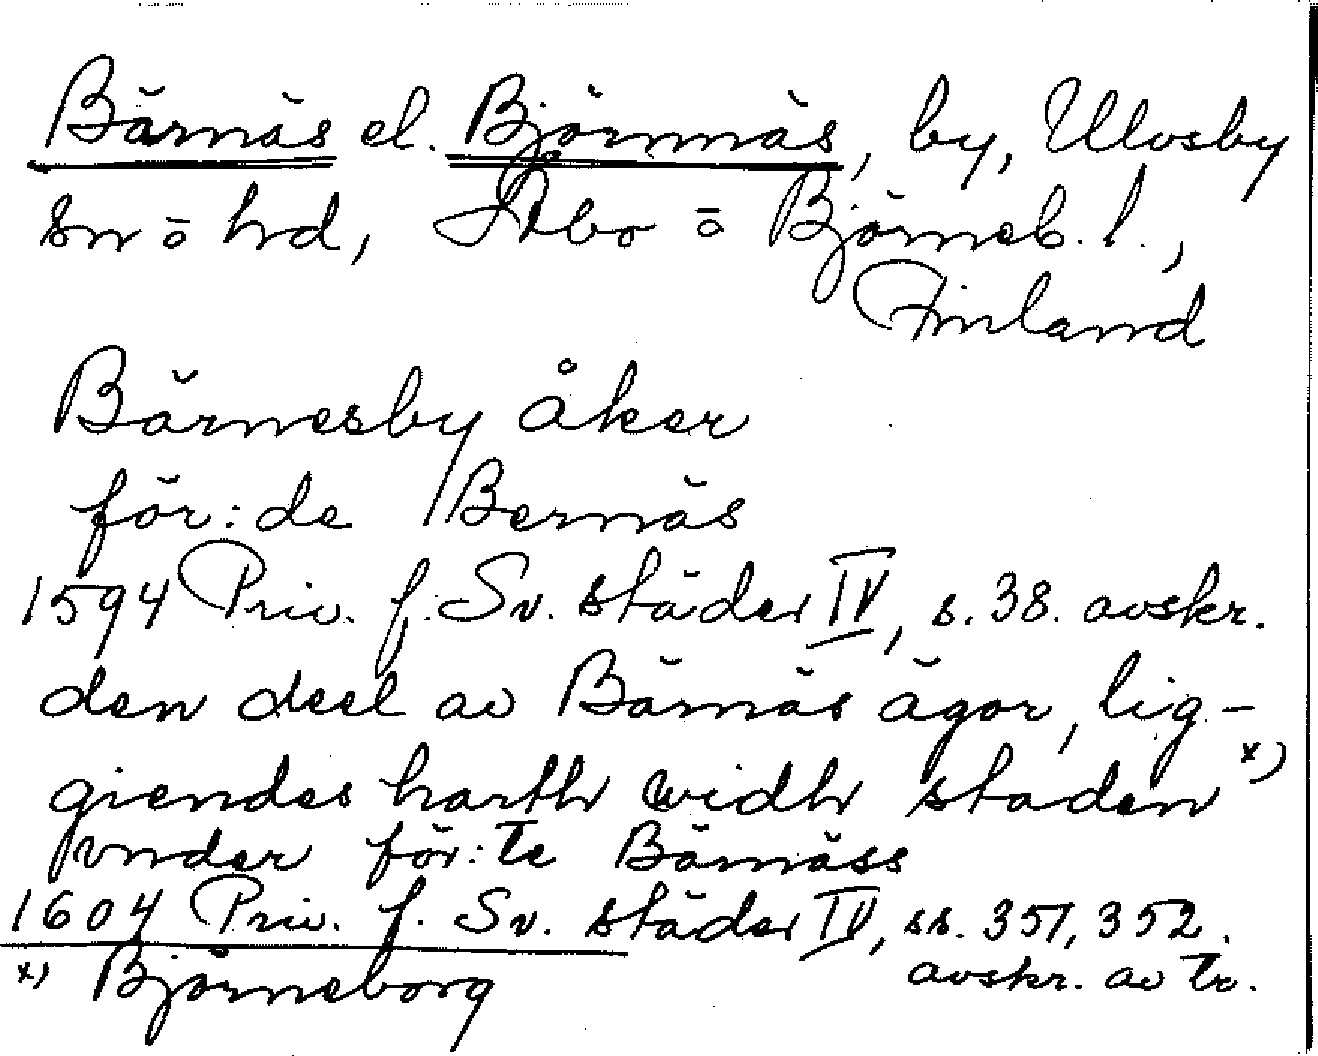 Bärnäs el. Björnnäs, by, Ulvsby
sn ō hd, Åbo ō Björneb. l.,
Finland
Bärnesby åker
för:de Bernäs
1594 Priv. f. Sv. städer IV, s. 38. avskr.
den deel av Bärnäs ägor, lig-
giendes harth widh staden x)
vnder för:te Bärnäss
1604 Priv. f. Sv. städer IV, ss. 351, 352.
avskr. av tr.
x) Björneborg